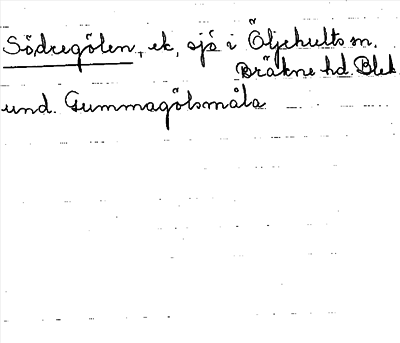 Södregölen, ek, sjö i Öljehults sn.
Bräkne hd Blek
und. Gummagölsmåla